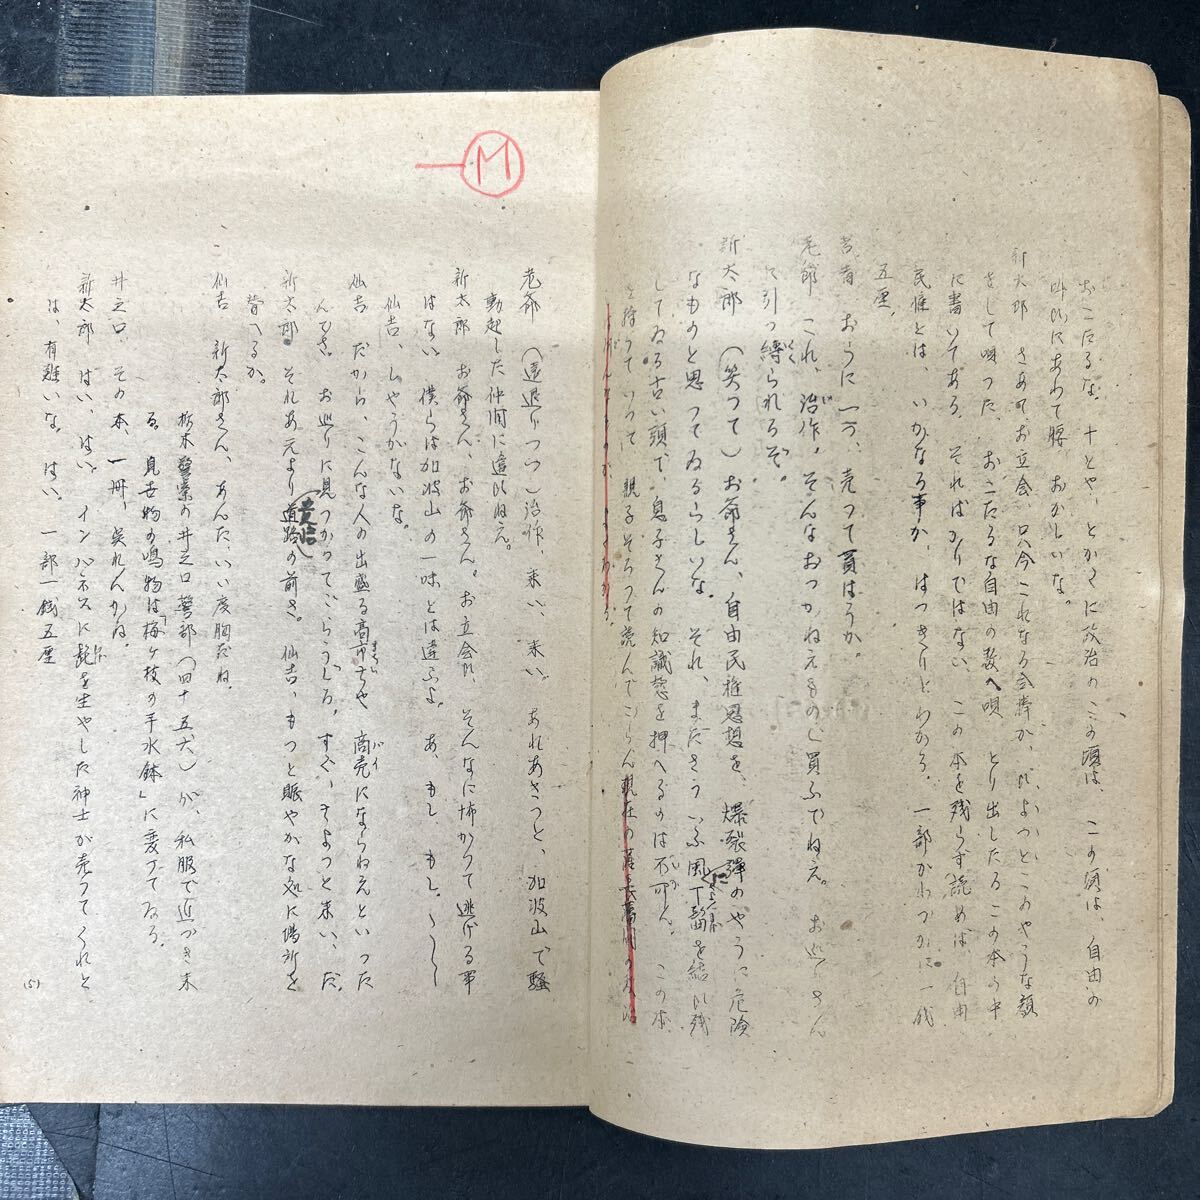 おこたるな。十とや、とかくに政治のこの頃は、この頃は、自由の
叫びにあわて腰、おかしいな。
新太郎 さあてお立会、只今これなる会津が、ひよつとこのやうな顔
をして唄つた、おこたるな自由の数へ唄 とり出したるこの本の中
に書いてある。そればかりではない、この本を残らず読めば自由
民権とは、いかなる事か、はつきりとわかる。一部がわづかに一銭
五厘。
若者 おうに一つ、売つて貰はうか。
老爺 これ、治作。そんなおつかねえもの買ふでねえ。お巡りさん
に引つ縛られるぞ。
新太郎 (笑つて)お爺さん、自由民権思想を、爆裂弾のやうに危険
なものと思つてゐるらしいな。それ、まださういふ風に丁髷を結び残
してゐる古い頭で、息子さんの知識慾を押へるのは不可ん。この本
を持つていつて、親子そろつて読んでごらん
Ⓜ
老爺 (遠退りつつ)治作、来い、来い。あれあさつと、加波山で騒
動起した仲間に違ひねえ。
新太郎 お爺さん、お爺さん。お立会が、そんなに怖がつて逃げる事
はない 僕らは加波山の一味とは違ふよ。あ、もし、もし。
仙吉、しやうがないな。
仙吉 だから、こんな人の出盛る高市ぢや 商売にならねえといつた
んでさ。お巡りに見つかつてごらうじろ。すぐ、ちよつと来い、だ。
新太郎 それあ元より覚悟の前さ。仙吉、もつと賑やかな処に場所を
替へるか。
仙吉 新太郎さん、あんた、いい度胸だね。
栃木警察の井之口警部(四十五六)が、私服で近づき来
る。見世物の鳴物は「梅ヶ枝の手水鉢」に変つてゐる。
井之口 その本、一冊、呉れんかね。
新太郎 はい、はい。インバネスに髭を生やした紳士が売つてくれと
は、有難いな。はい。一部一銭五厘
(5)